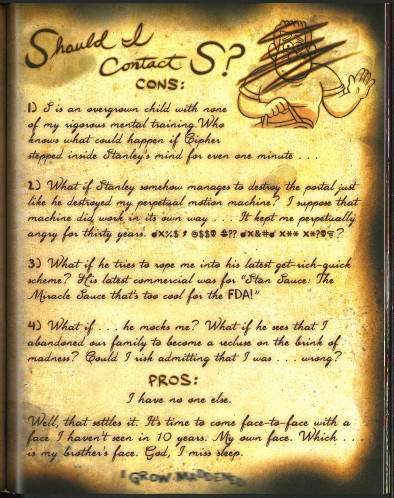 Should I
Contact S?
CONS:
1) S is an overgrown child with none
of my rigorous mental training. Who
knows what could happen if Cipher
stepped inside Stanley's mind for even one minute . . .
2) What if Stanley somehow manages to destroy the portal just
like he destroyed my perpetual motion machine? I suppose that
machine did work in its own way . . . It kept me perpetually
angry for thirty years.
3) What if he tries to rope me into his latest get-rich-quick
scheme? His latest commercial was for "Stan Sauce: The
Miracle Sauce that's too cool for the FDA!"
4) What if . . . he mocks me? What if he sees that I
abandoned our family to become a recluse on the brink of
madness? Could I risk admitting that I was . . . wrong?
PROS:
I have no one else.
Well, that settles it. It's time to come face-to-face with a
face I haven't seen in 10 years. My own face. Which . . .
is my brother's face. God, I miss sleep.
I GROW MADDENED